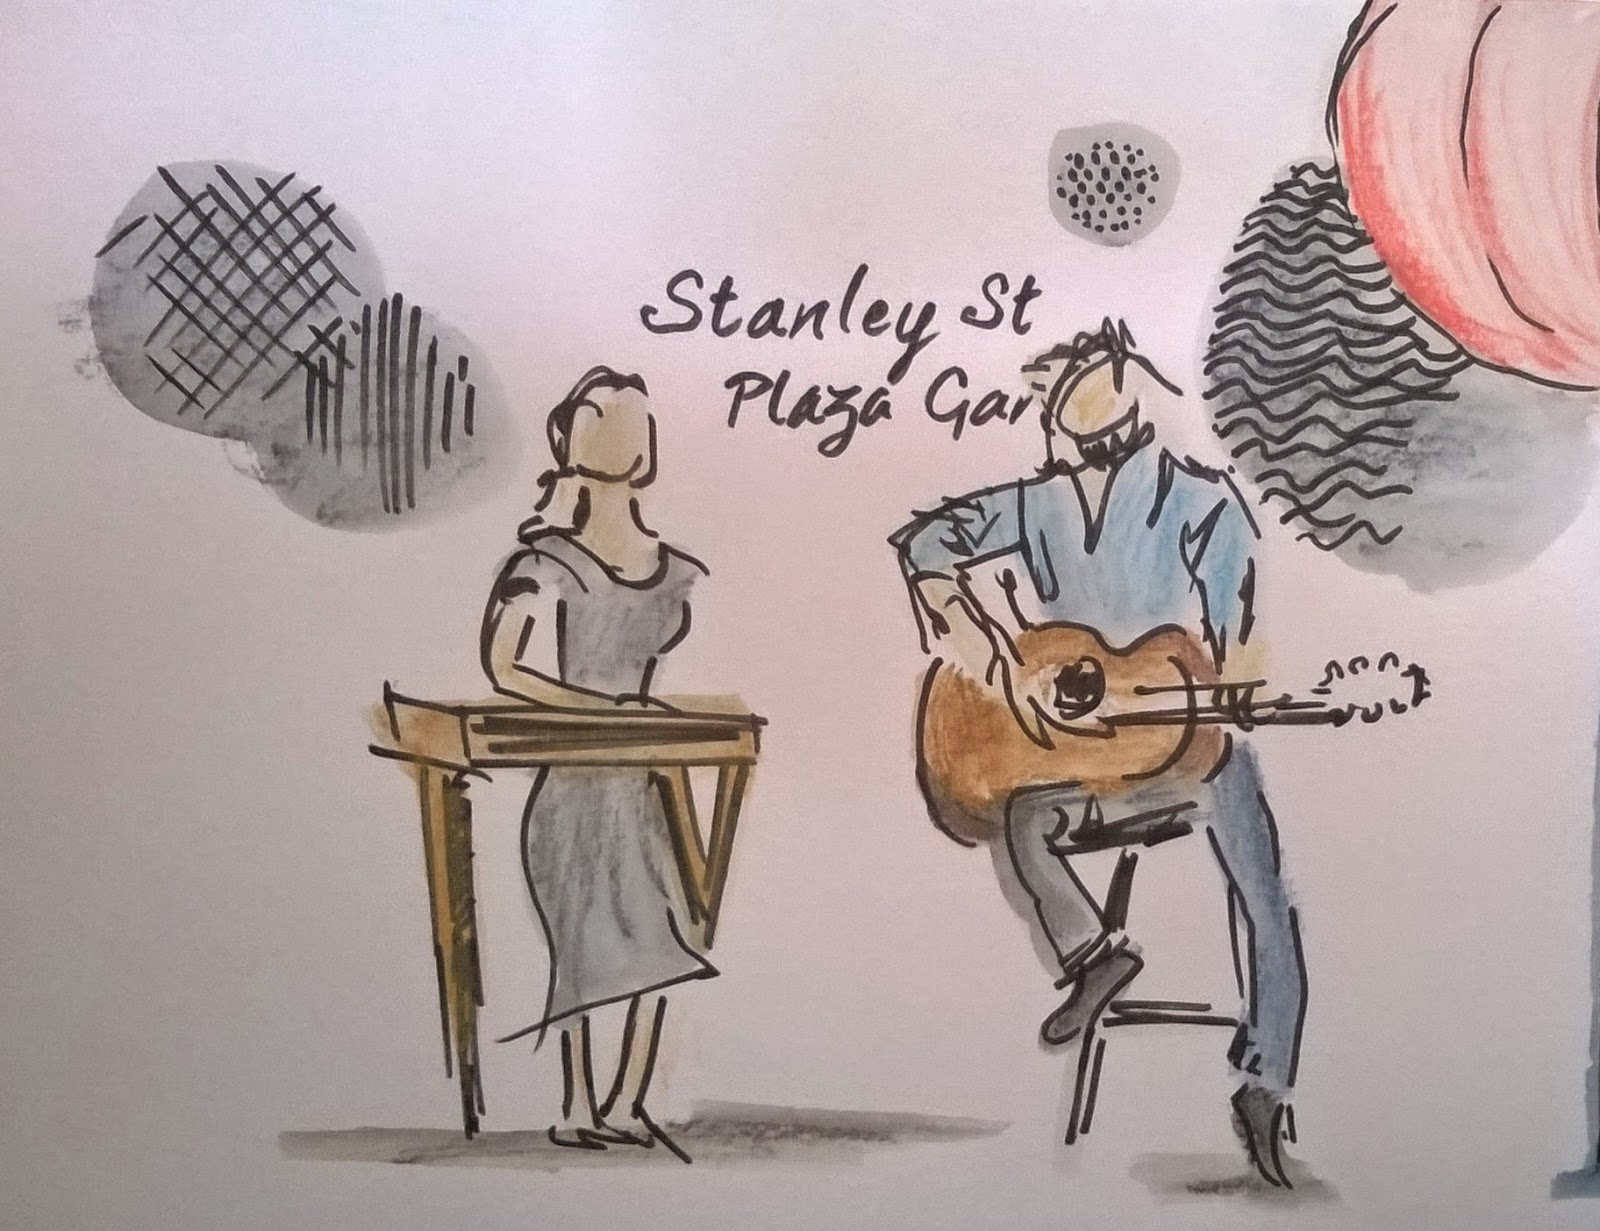 Stanley St
Plaza Gar